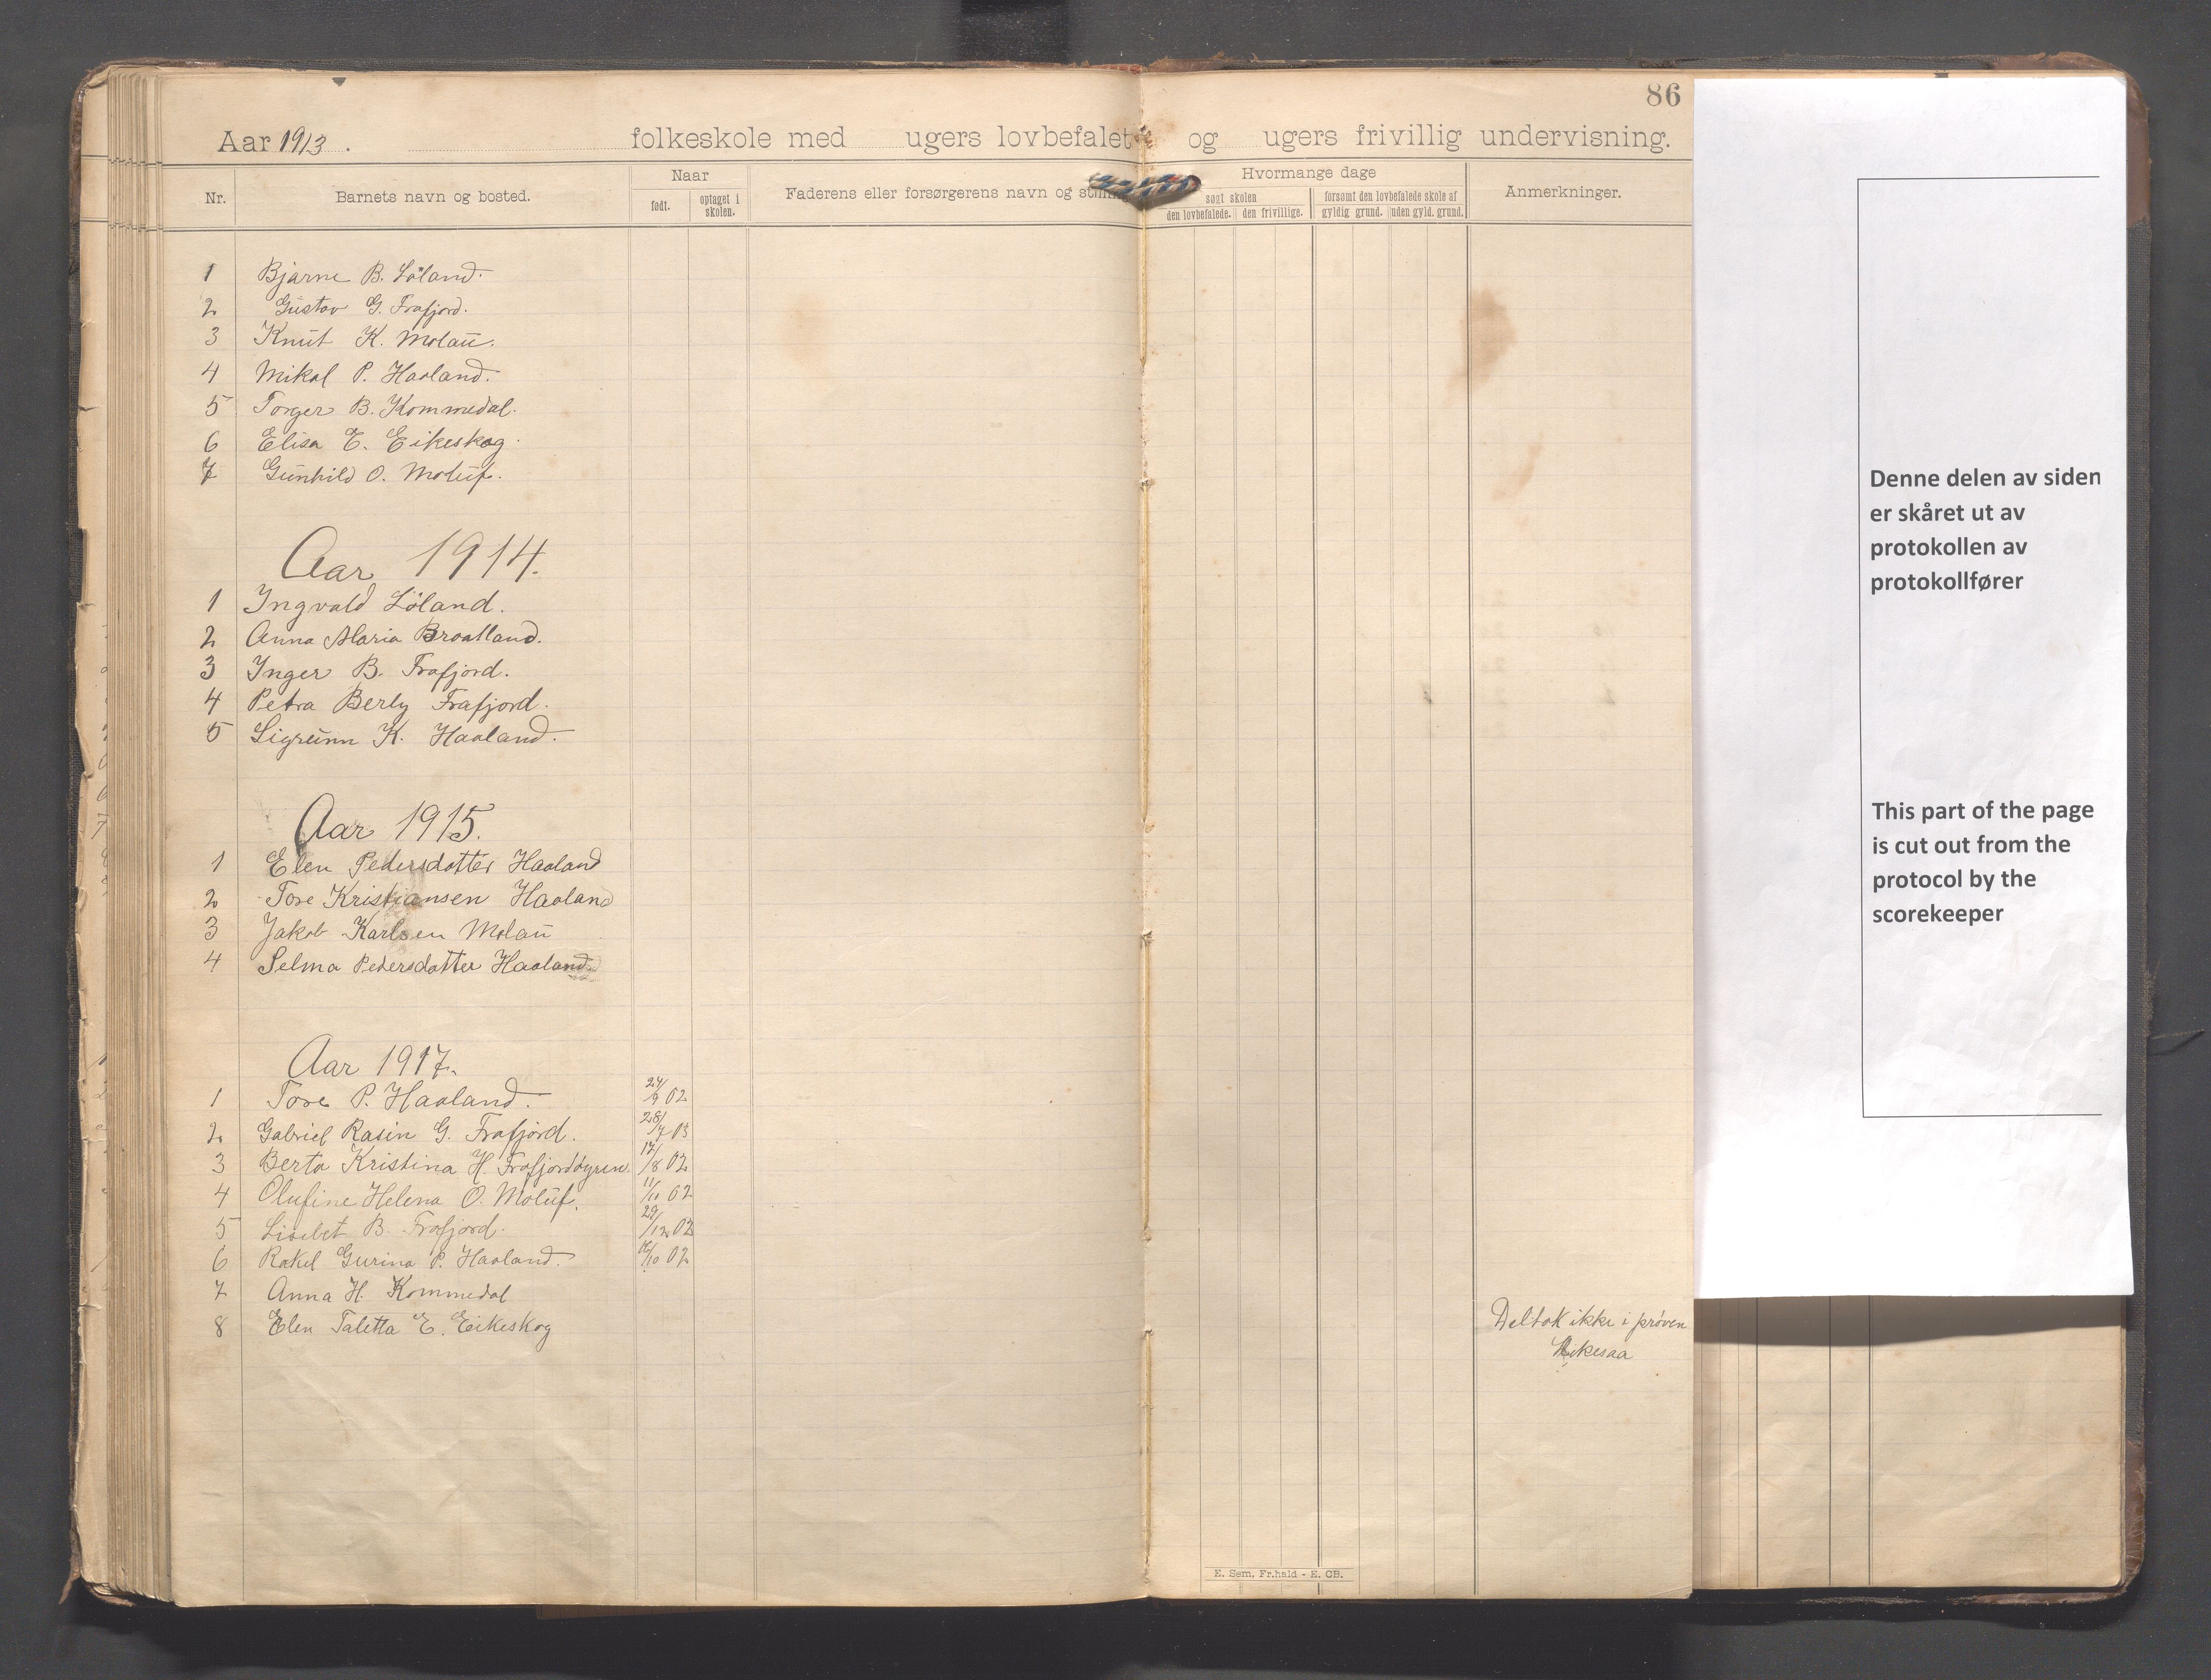 86
Aar 1913. folkeskole med ugers lovbefalet og ugers frivillig undervisning.
Nr. Barnets navn og bosted. Naar født. optaget i skolen. Faderens eller forsørgerens navn og stilling Hvormange dage søgt skolen den lovbefalede. den frivillige. forsømt den lovbefalede skole af gyldig grund. uden gyld. grund. Anmerkninger.
1 Bjarne B. Løland.
2 Gustav G. Frafjord.
3 Knut K. Molau.
4 Mikal P. Haaland.
5 Torger B. Kommedal.
6 Elisa E. Eikeskog.
7 Gunhild O. Moluf.
Aar 1914.
1 Ingvald Løland.
2 Anna Maria Braatland.
3 Inger B. Frafjord.
4 Petra Berly Frafjord.
5 Sigrunn K. Haaland.
Aar 1915.
1 Elen Pedersdotter Haaland
2 Tore Kristiansen Haaland
3 Jakob Karlsen Molau
4 Selma Pedersdotter Haaland
Aar 1917.
1 Tore P. Haaland. 24/9 02
2 Gabriel Rasin G. Frafjord. 28/7 03
3 Berta Kristina H. Frafjordøyren. 17/8 02
4 Olufine Helena O. Moluf. 11/11 02
5 Lisebet B. Frafjord. 29/12 02
6 Rakel Gurina P. Haaland. /10 02
7 Anna H. Kommedal
8 Elen Taletta E. Eikeskog Deltok ikke i prøven
Eikesaa
E. Sem, Fr.hald - E. CB.
Denne delen av siden
er skåret ut av
protokollen av
protokollfører
This part of the page
is cut out from the
protocol by the
scorekeeper